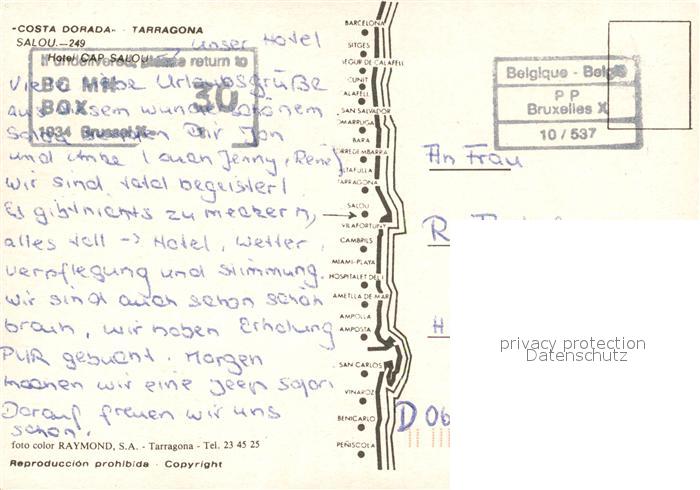 -COSTA DORADA- · TARRAGONA
SALOU.—249
Hotel CAP SALOU
→ unser Hotel
If undelivered, please return to
BC MIH
BOX 30
1934 Brussel
Viele liebe Urlaubsgrüße
aus diesem wunderschönem
Salou senden Dir Jan
und Anke (auch Jenny, René)
Wir sind total begeistert
Es gibt nichts zu meckern,
alles toll -> Hotel, Wetter,
Verpflegung und Stimmung.
Wir sind auch schon schön
braun, wir haben Erholung
PUR gebucht. Morgen
machen wir eine Jeep Safari
Darauf freuen wir uns
schon.
foto color RAYMOND, S.A. - Tarragona - Tel. 23 45 25
Reproducción prohibida · Copyright
BARCELONA
SITGES
SEGUR DE CALAFELL
CUNIT
CALAFELL
SAN SALVADOR
COMARRUGA
BARA
TORREDEMBARRA
ALTAFULLA
TARRAGONA
SALOU
VILAFORTUNY
CAMBRILS
MIAMI-PLAYA
HOSPITALET DEL I
AMETLLA DE MAR
AMPOLLA
AMPOSTA
SAN CARLOS
VINAROZ
BENICARLO
PEÑISCOLA
Belgique - België
P P
Bruxelles X
10 / 537
An Frau
R
H
D 06
privacy protection
Datenschutz